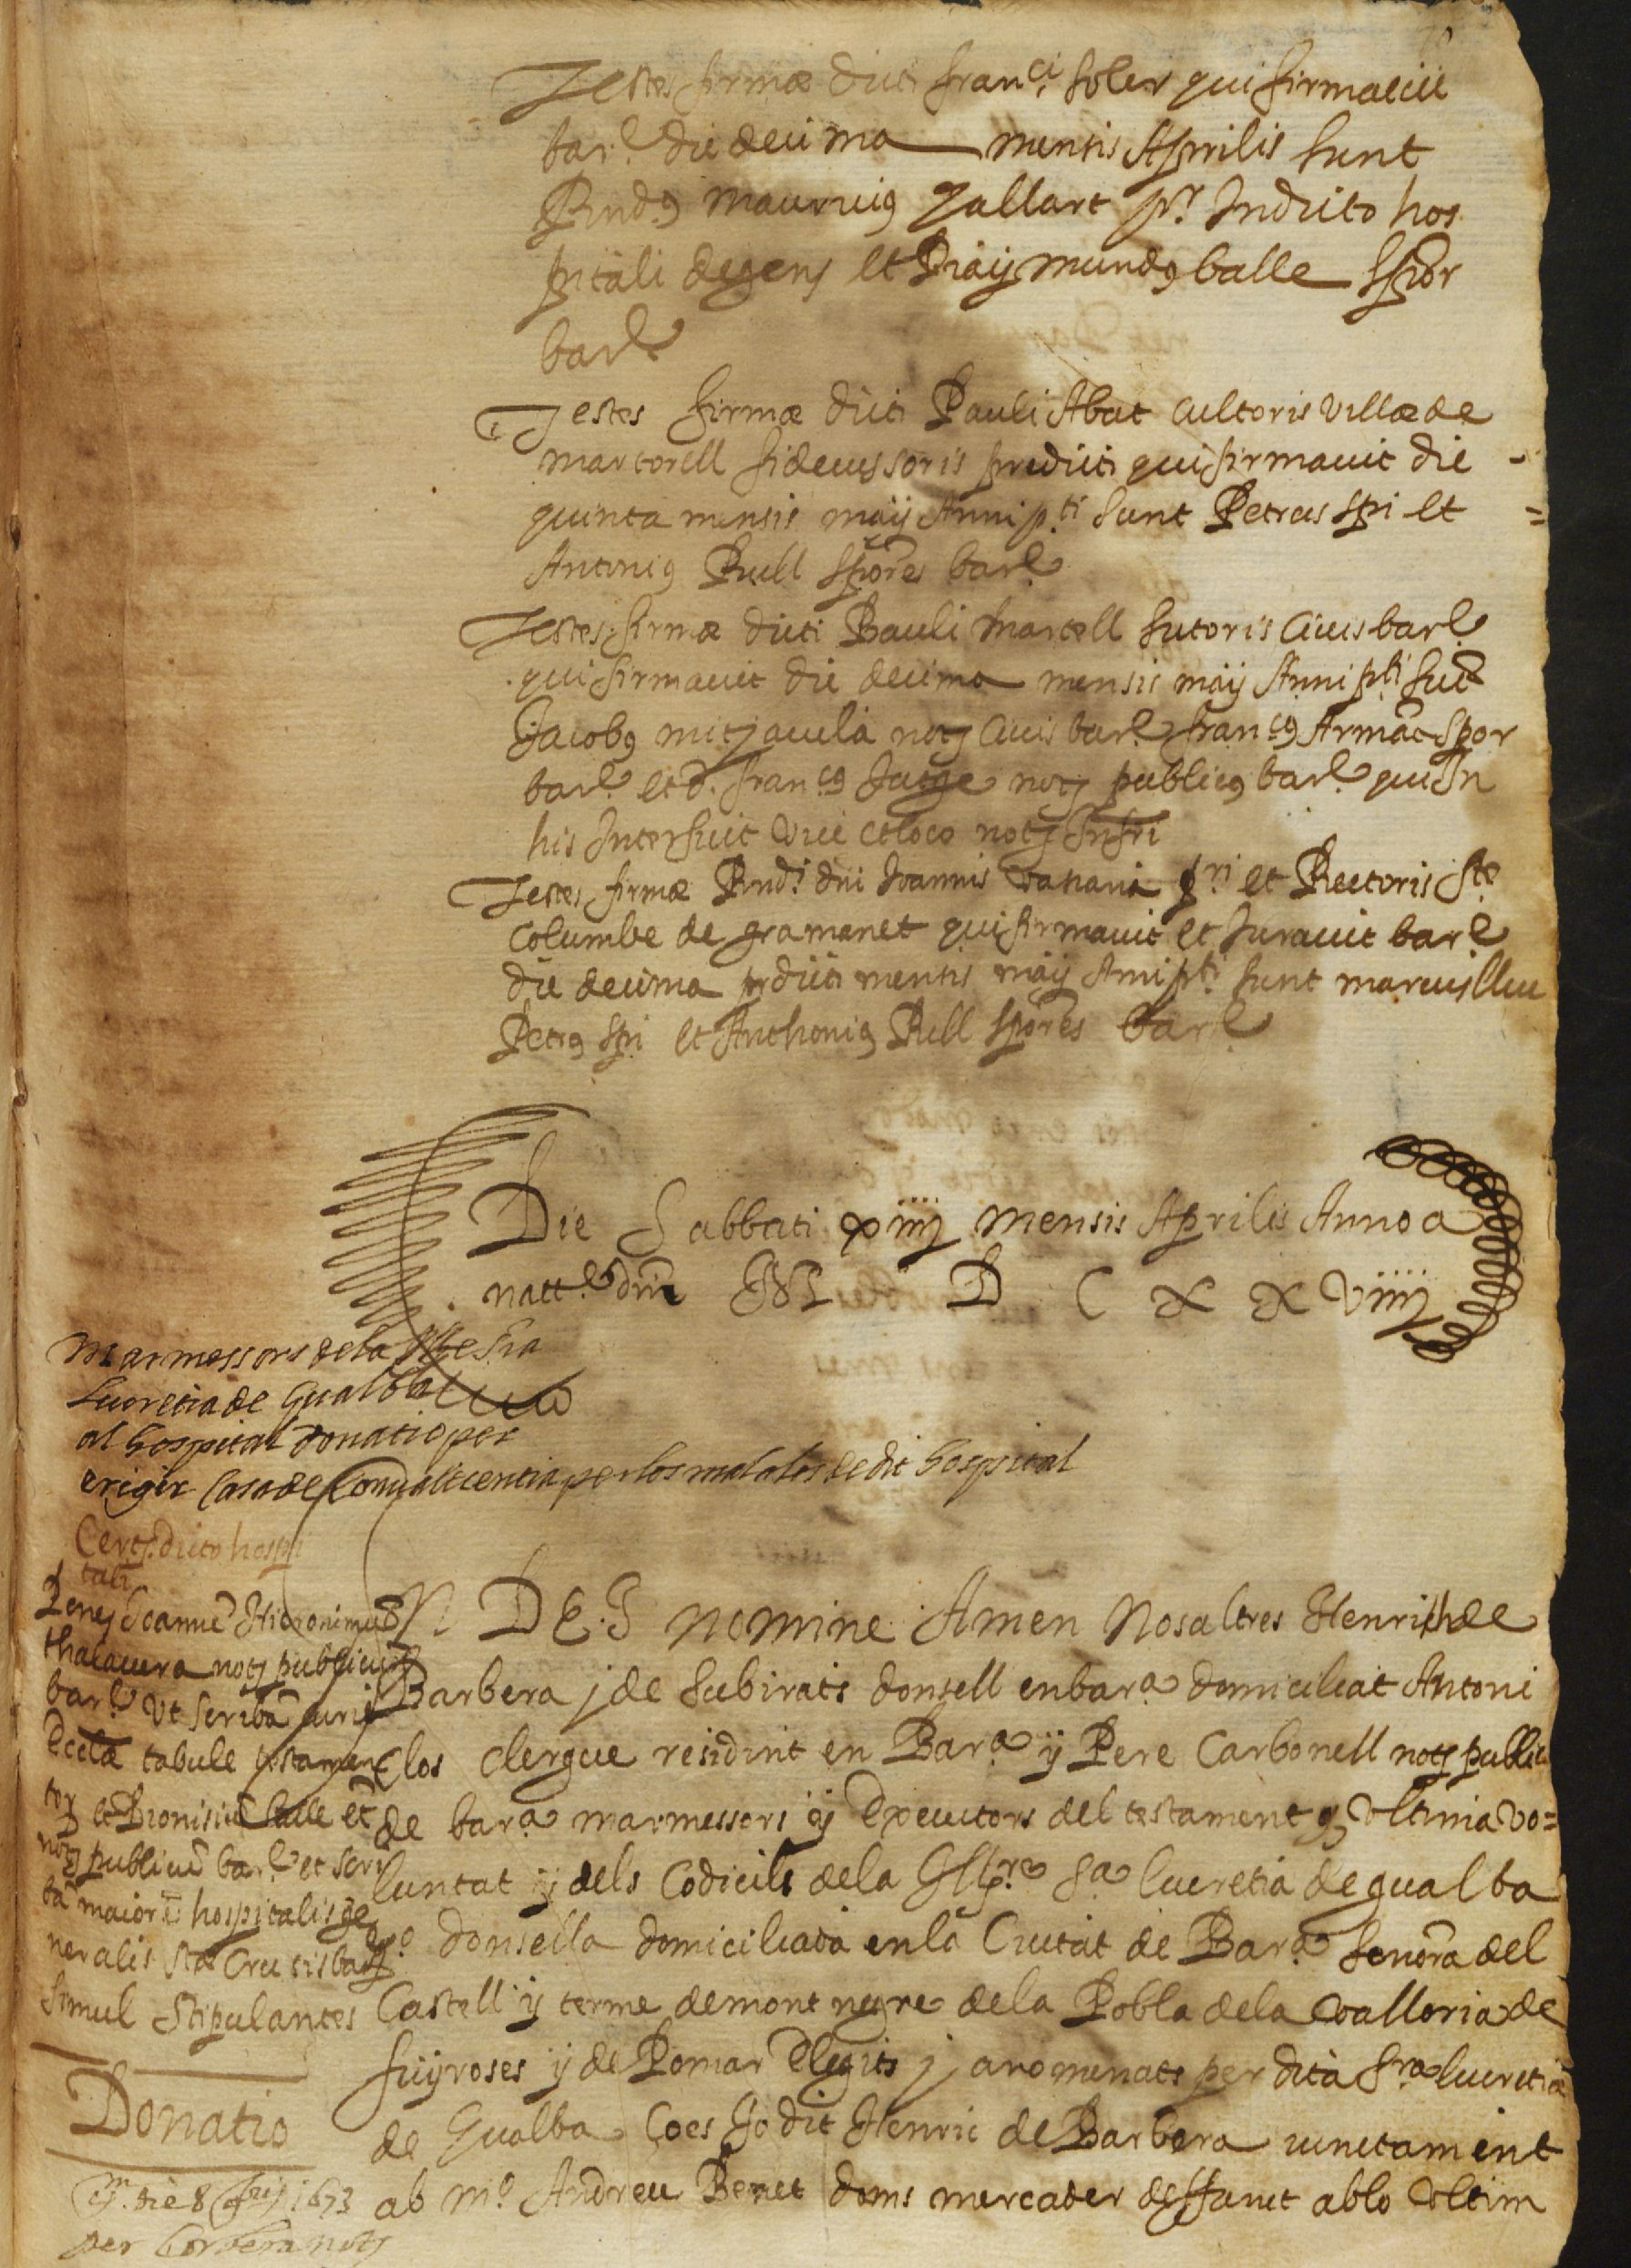 Testes firmæ dicti franci. soler qui firmavit
barl. die decima mensis Aprilis sunt
Rnds. Mauricius Gallart pr. In dicto hos
pitali degens et Raymundus balle Scptor
barl.
Testes firmæ dicti Pauli Abat cultoris villæ de
martorell fideiussoris predicti qui firmavit die -
quinta mensis maij Anni pti. sunt Petrus Spi et =
Antonius Rull Scptores barl.
Testes firmæ dicti Pauli martell sutoris Civis barl.
qui firmavit die decima mensis maij Anni pti sunt
Jacobus mitjavila nots Civis barl. Francus Scptor
barl. et d. francus nots publicus barl. qui In
his Interfuit vice et loco nots Infri
Testes firmæ Rndi. dni Joannis pri et Rectoris Ste
Columbe de gramanet qui firmavit et Juravit barl
die decima prdicti mensis maij Anni pti. sunt
Petrus Spi et Anthonius Rull Scptores barl
Die Sabbati xiiij Mensis Aprilis Anno a
natt. dni M D C X X Viiij
Marmessors de la Sra
Lucretia de Gualba
al hospital donatio per
erigir Casa de Convalecentia per los malalts de dit hospital
Certs. dicto hospi
tali
Penes Joannem Hieronimum
thalavera nots publicum
barl. Vt scribã curie
Ecclæ tabule testamen
tor et Dionisium et
nots publicum barl. et scri
bã maiorẽ hospitalis ge
neralis Stæ Crucis barl.
simul Stipulantes
Donatio
die 8 1673
per Corbera nots
N DEI nomine Amen Nosaltres Henrich de
Barbera j de Subirats donsell en bara. domiciliat Antoni
clos clergue residint en Bara. y Pere Carbonell nots public
de bara. marmessors y Executors del testament y Vltima vo=
luntat y dels Codicils dela Sa. lucretia de gualba
donsella domiciliada en la Ciutat de Bara. Senora del
Castell y terme de mont negre dela Pobla dela valloria de
y de Pomar Elegits j anomenats per dita Sra. lucretia
de Gualba Ço es Jo dit Henric de Barbera iunctament
ab mo. Andreu Benet doms mercader deffunct ab lo vltim